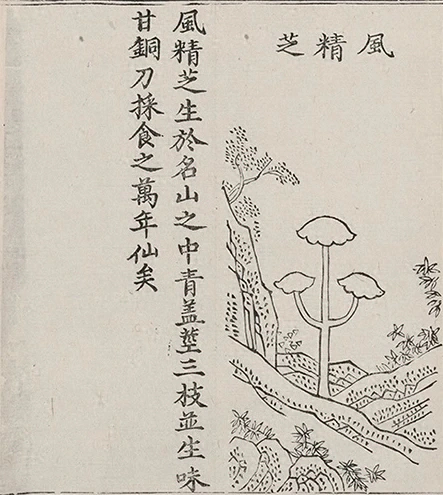 風精芝
風精芝生於名山之中青盖莖三枝並生味
甘銅刀採食之萬年仙矣